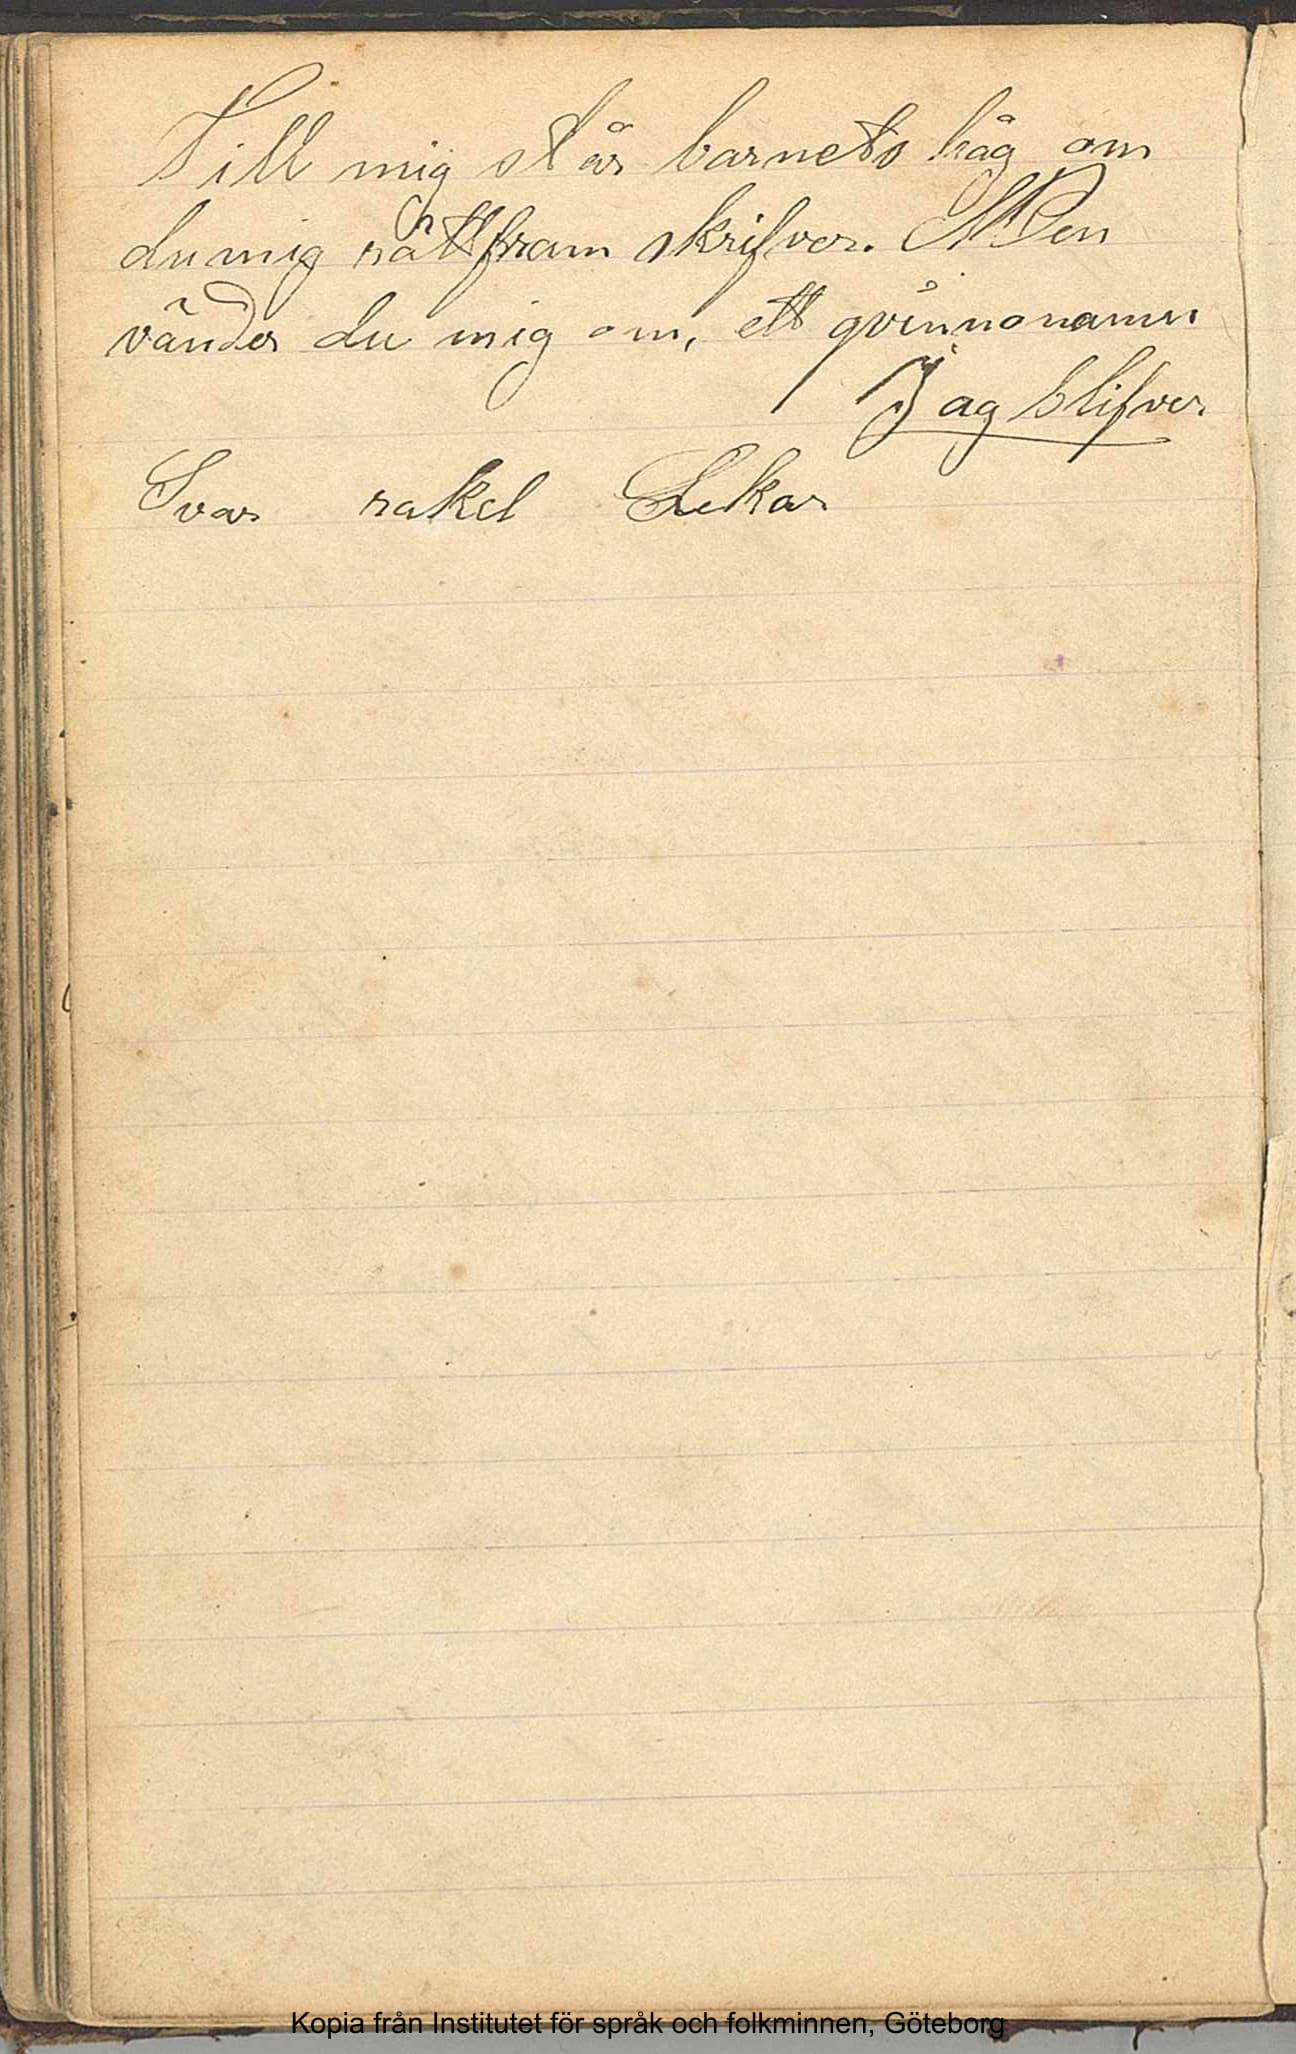 Till mig står barnets håg om
du mig rättfram skrifver. Men
vänder du mig om, ett qvinnonamn
Jag blifver
Svar rakel Lekar
Kopia från Institutet för språk och folkminnen, Göteborg